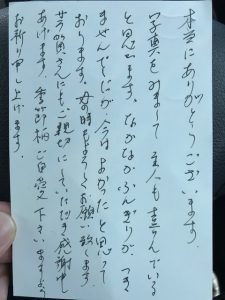 本当にありがとうございます。
写真をみまして 主人も喜んでいる
と思います。なかなかふんぎりが つき
ませんでしたが 今はよかったと思って
おります。母の時もよろしくお願い致します。
さんにもご親切にしていただき感謝申し
あげます。季節柄ご自愛下さいますよう
お祈り申し上げます。